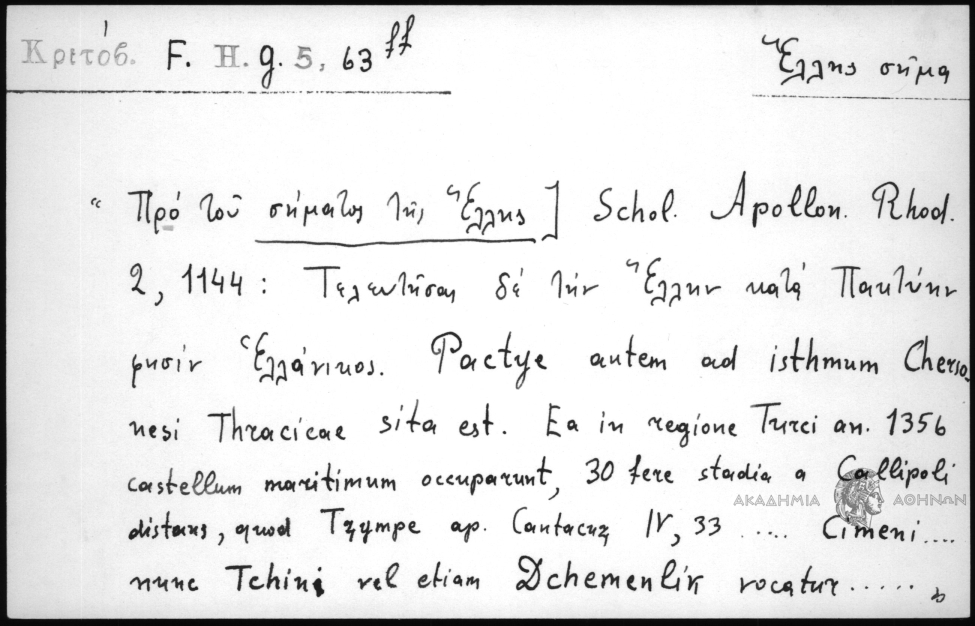 Κριτόβ. F. H. g. 5, 63 ff
Ἕλλης σῆμα
“ Πρὸ τοῦ σήματος τῆς Ἕλλης ] Schol. Apollon. Rhod.
2, 1144 : Τελευτῆσαι δὲ τὴν Ἕλλην κατὰ Πακτύην
φησὶν Ἑλλάνικος. Pactye autem ad isthmum Cherso-
nesi Thracicae sita est. Ea in regione Turci an. 1356
castellum maritimum occuparunt, 30 fere stadia a Callipoli
distans, quod Tzympe ap. Cantacuz IV, 33 ..... Cimeni ....
nunc Tchini vel etiam Dchemenlik vocatur ..... »
ΑΚΑΔΗΜΙΑ ΑΘΗΝΩΝ